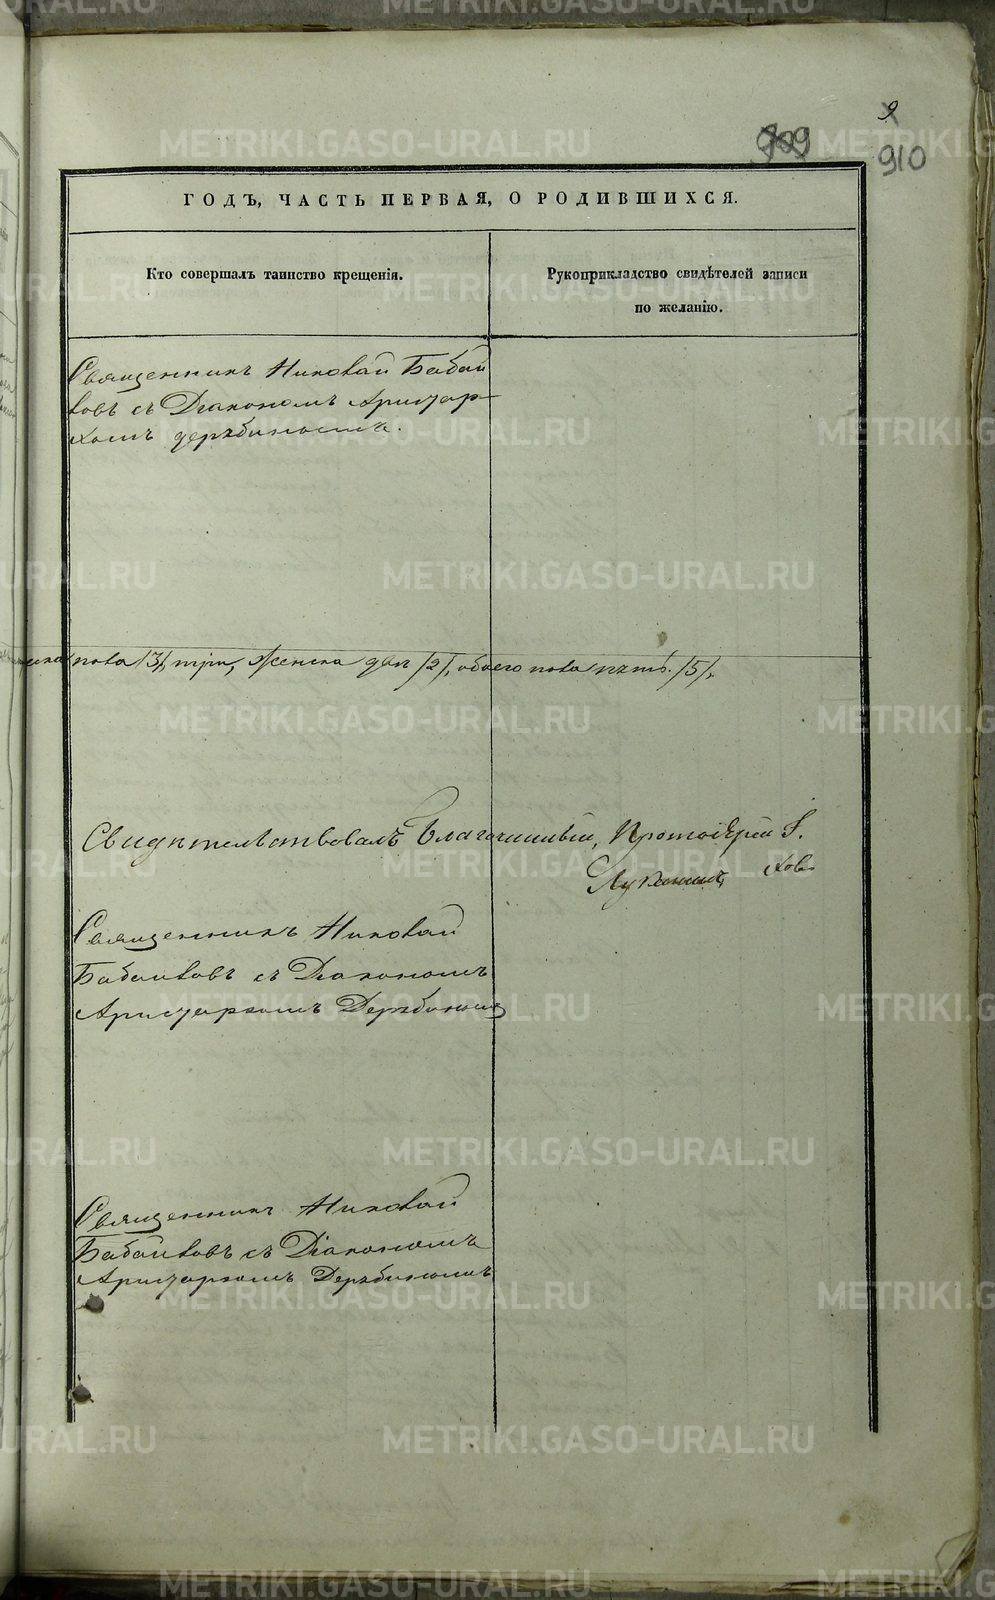 9
909
910
ГОДЪ, ЧАСТЬ ПЕРВАЯ, О РОДИВШИХСЯ.
Кто совершалъ таинство крещенія.
Рукоприкладство свидѣтелей записи
по желанію.
Священникъ Николай Бабай
ковъ съ Діакономъ Аристар-
хомъ Дерябинымъ.
пола /3/, три, Женска двѣ /2/, обоего пола пять. /5/,
Свидѣтельствовалъ Благочинный, Протоіерей І.
Священникъ Николай
Бабайковъ съ Діакономъ
Аристархомъ Дерябинымъ
Священникъ Николай
Бабайковъ съ Діакономъ
Аристархомъ Дерябинымъ
METRIKI.GASO-URAL.RU